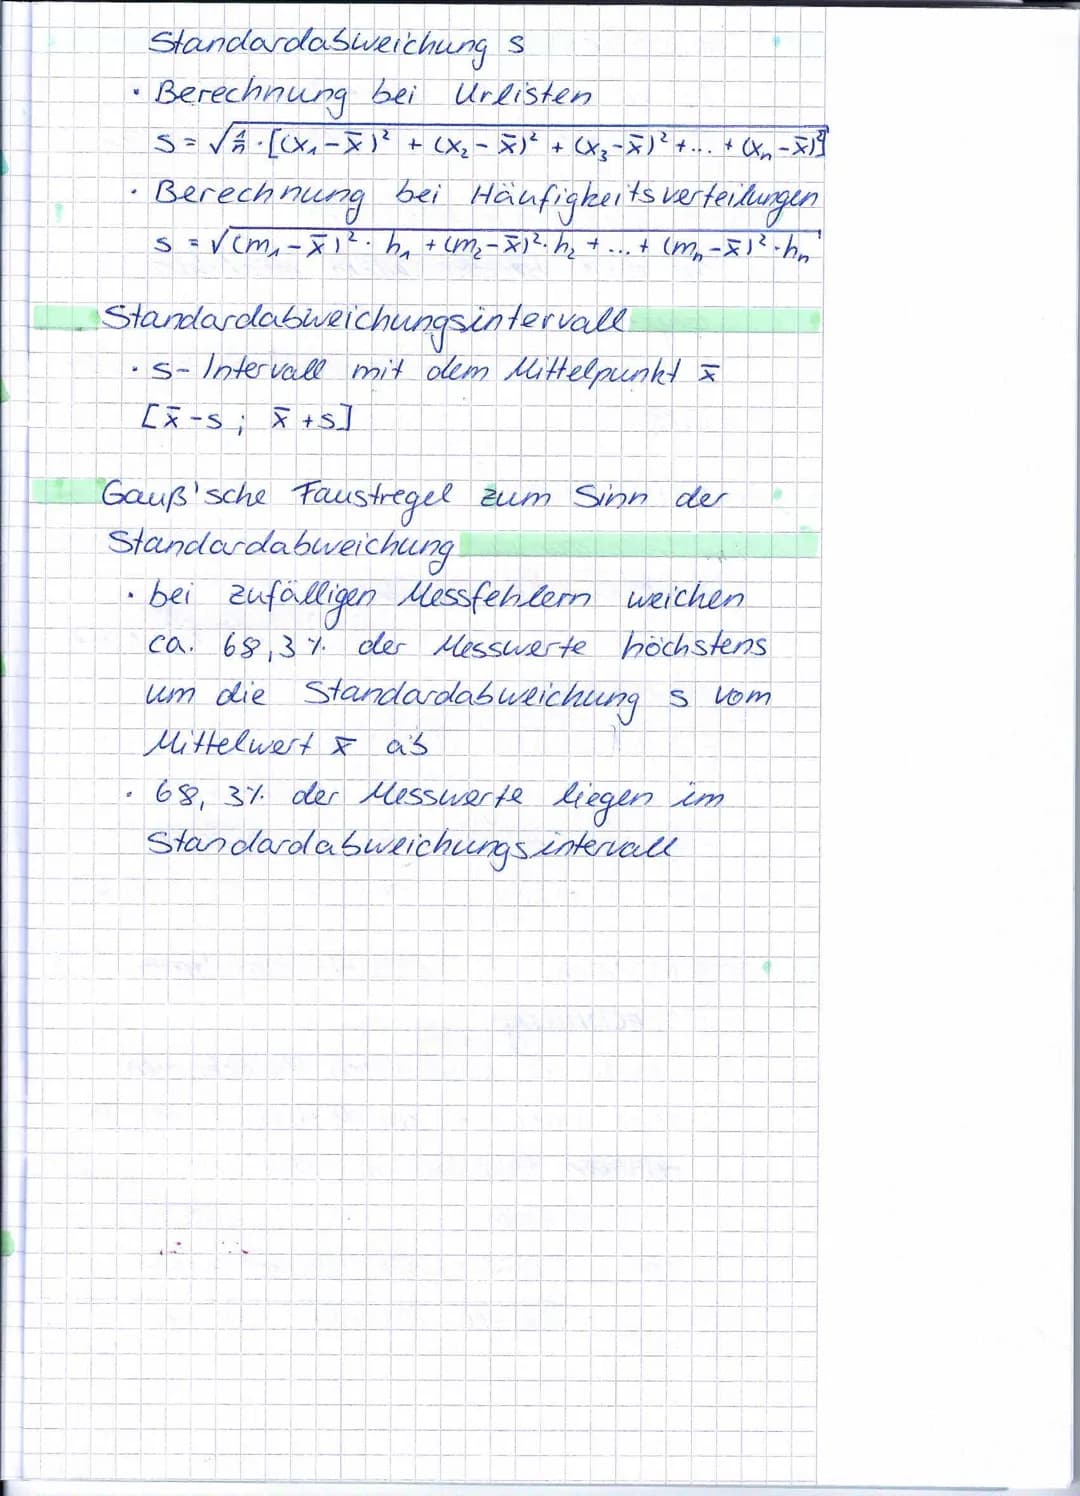 Standardabweichung s
· Berechnung bei Urlisten
s = √(1/n · [(x₁ - x̄)² + (x₂ - x̄)² + (x₃ - x̄)² + ... + (xₙ - x̄)²])
· Berechnung bei Häufigkeitsverteilungen
s = √((m₁ - x̄)² · h₁ + (m₂ - x̄)² · h₂ + ... + (mₙ - x̄)² · hₙ)
Standardabweichungsintervall
· s- Intervall mit dem Mittelpunkt x̄
[x̄ - s ; x̄ + s]
Gauß'sche Faustregel zum Sinn der
Standardabweichung
· bei zufälligen Messfehlern weichen
ca. 68,3 % der Messwerte höchstens
um die Standardabweichung s vom
Mittelwert x̄ ab
· 68,3% der Messwerte liegen im
Standardabweichungsintervall